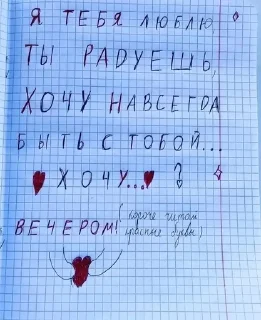 Я ТЕБЯ ЛЮБЛЮ,
ТЫ РАДУЕШЬ,
ХОЧУ НАВСЕГДА
БЫТЬ С ТОБОЙ...
ХОЧУ...
ВЕЧЕРОМ! (короче читай
красные буквы)